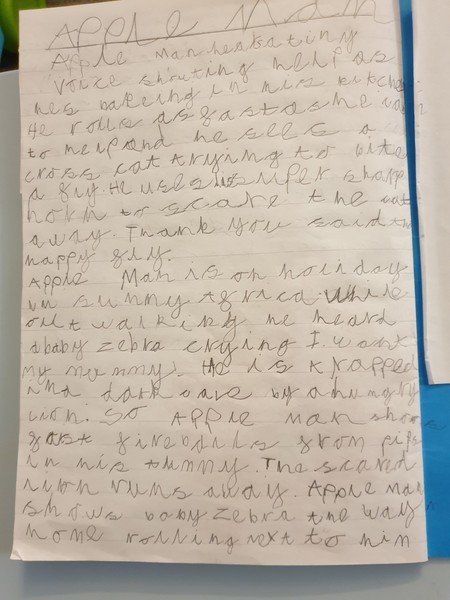 APPLE Man
Apple Man hears a tiny
voice shouting help as
hes bakeing in his kitchen
He rolls as fast as he can
to help and he sees a
cross cat trying to bite
a fly. He uses his super sharp
horn to scare the cat
away. Thank you said the
happy fly.
Apple Man is on holiday
in sunny Africa. While
out walking he heard
a baby zebra crying I want
my mummy. He is trapped
in a dark cave by a hungry
lion. So Apple Man shoots
fast fireballs from pips
in his tummy. The scared
lion runs away. Apple Man
shows baby zebra the way
home rolling next to him